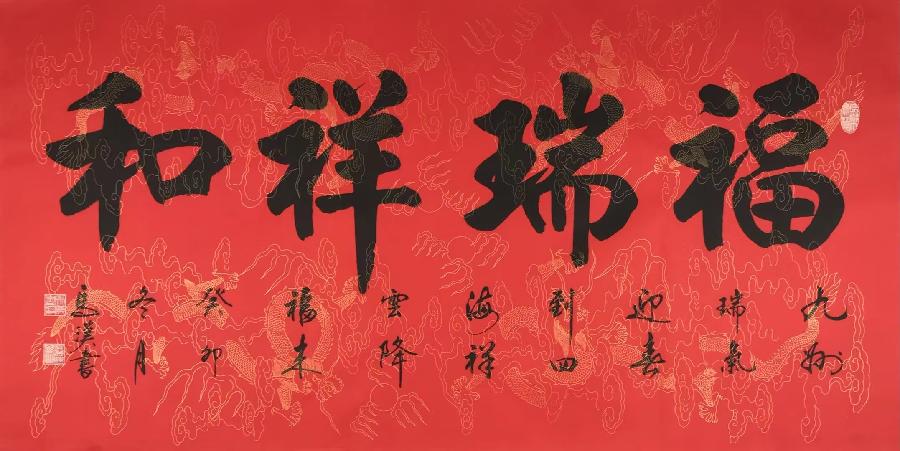 福瑞祥和
九州
瑞氣
迎春
到四
海祥
雲降
福来
癸卯
冬月
漢書